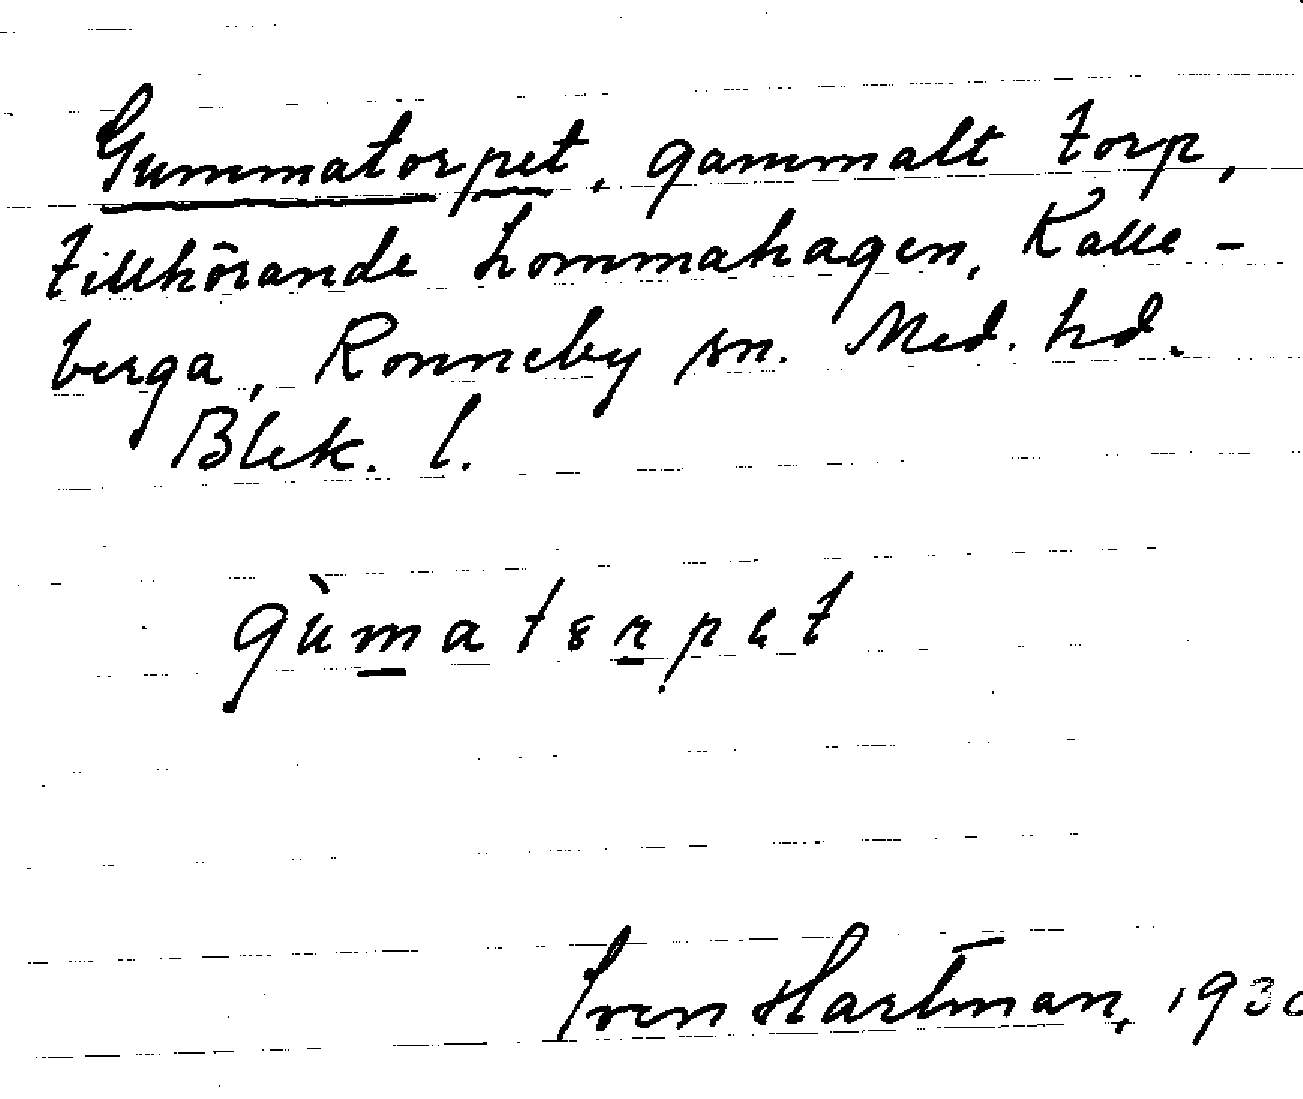 Gummatorpet, gammalt torp,
tillhörande Lommahagen, Kalle-
berga, Ronneby sn. Med. hd.
Blek. l.
Sven Hartman, 193